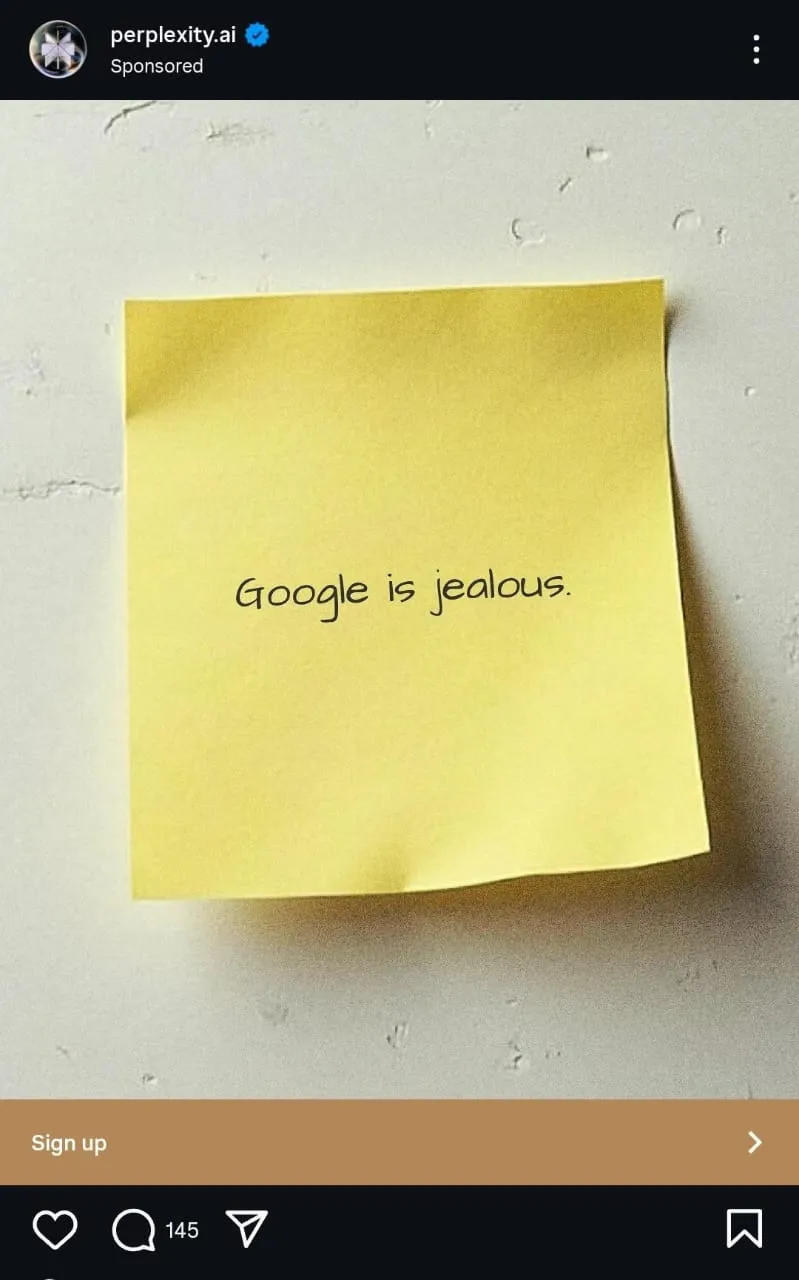 perplexity.ai
Sponsored
Google is jealous.
Sign up
145